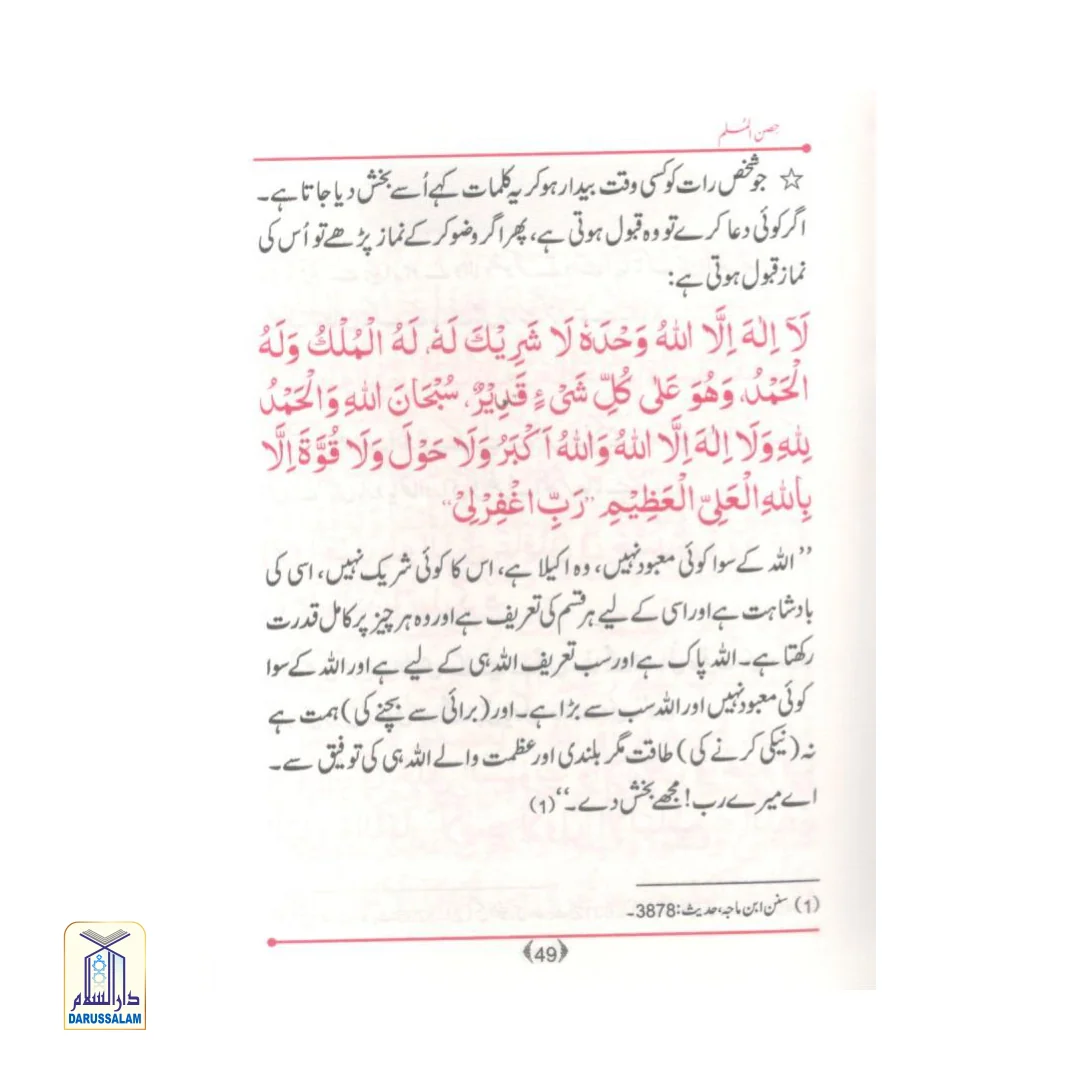 حصن المسلم
☆ جو شخص رات کو کسی وقت بیدار ہو کر یہ کلمات کہے اُسے بخش دیا جاتا ہے۔
اگر کوئی دعا کرے تو وہ قبول ہوتی ہے، پھر اگر وضو کر کے نماز پڑھے تو اُس کی
نماز قبول ہوتی ہے:
لَآ اِلٰهَ اِلَّا اللهُ وَحْدَهٗ لَا شَرِيْكَ لَهٗ، لَهُ الْمُلْكُ وَلَهُ
الْحَمْدُ، وَهُوَ عَلٰى كُلِّ شَىْءٍ قَدِيْرٌ، سُبْحَانَ اللهِ وَالْحَمْدُ
لِلهِ وَلَا اِلٰهَ اِلَّا اللهُ وَاللهُ اَكْبَرُ وَلَا حَوْلَ وَلَا قُوَّةَ اِلَّا
بِاللهِ الْعَلِىِّ الْعَظِيْمِ ”رَبِّ اغْفِرْلِىْ“
”اللہ کے سوا کوئی معبود نہیں، وہ اکیلا ہے، اس کا کوئی شریک نہیں، اسی کی
بادشاہت ہے اور اسی کے لیے ہر قسم کی تعریف ہے اور وہ ہر چیز پر کامل قدرت
رکھتا ہے۔ اللہ پاک ہے اور سب تعریف اللہ ہی کے لیے ہے اور اللہ کے سوا
کوئی معبود نہیں اور اللہ سب سے بڑا ہے۔ اور (برائی سے بچنے کی) ہمت ہے
نہ (نیکی کرنے کی) طاقت مگر بلندی اور عظمت والے اللہ ہی کی توفیق سے۔
اے میرے رب! مجھے بخش دے۔“ (1)
(1) سنن ابن ماجہ، حدیث: 3878۔
﴿49﴾
دارالسلام
DARUSSALAM